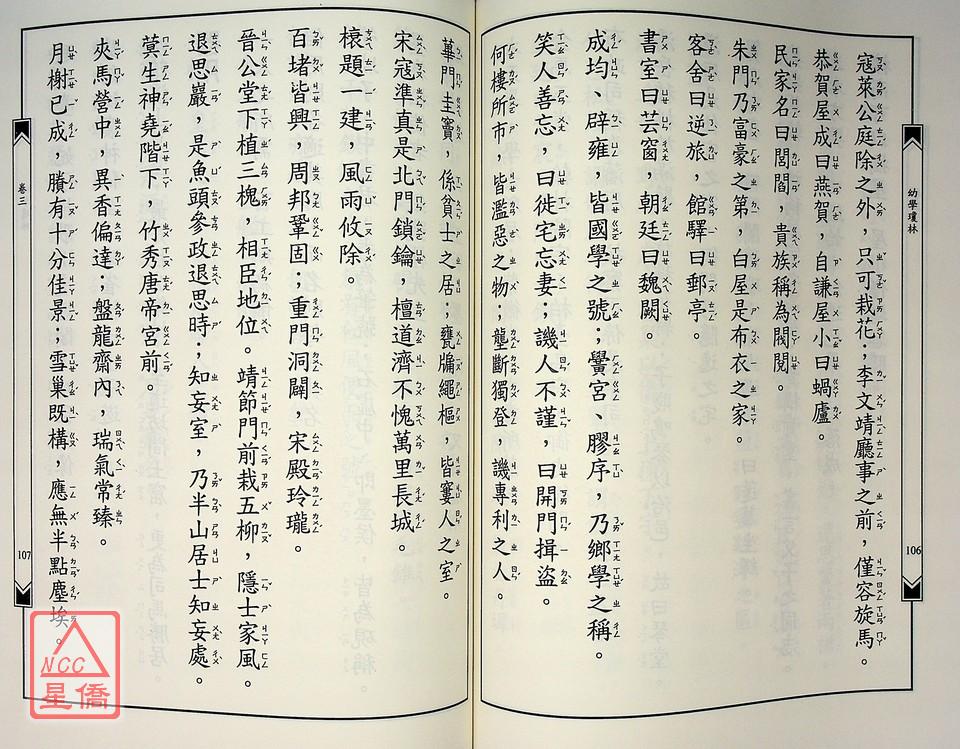 幼學瓊林
寇萊公庭除之外，只可栽花；李文靖廳事之前，僅容旋馬。
恭賀屋成曰燕賀，自謙屋小曰蝸廬。
民家名曰閭閻，貴族稱為閥閱。
朱門乃富豪之第，白屋是布衣之家。
客舍曰逆旅，館驛曰郵亭。
書室曰芸窗，朝廷曰魏闕。
成均、辟雍，皆國學之號；黌宮、膠序，乃鄉學之稱。
笑人善忘，曰徙宅忘妻；譏人不謹，曰開門揖盜。
何樓所市，皆濫惡之物；壟斷獨登，譏專利之人。
106
蓽門圭竇，係貧士之居；甕牖繩樞，皆窶人之室。
宋寇準真是北門鎖鑰，檀道濟不愧萬里長城。
榱題一建，風雨攸除
百堵皆興，周邦鞏固；重門洞闢，宋殿玲瓏。
晉公堂下植三槐，相臣地位。靖節門前栽五柳，隱士家風。
退思巖，是魚頭參政退思時；知妄室，乃半山居士知妄處。
蓂生神堯階下，竹秀唐帝宮前。
夾馬營中，異香偏達；盤龍齋內，瑞氣常臻。
月榭已成，賸有十分佳景；雪巢既構，應無半點塵埃。
卷三
107
NCC
星僑